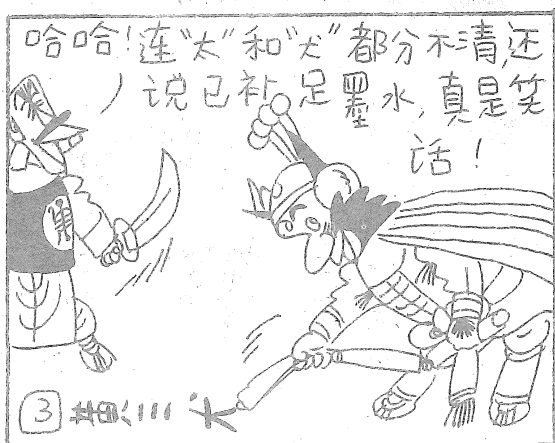 哈哈!连“太”和“犬”都分不清,还
说已补足墨水,真是笑
话!
3 黄三犬